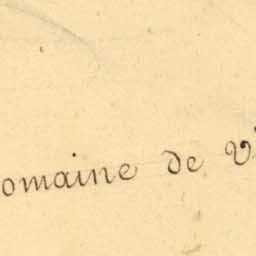 omaine de Vi